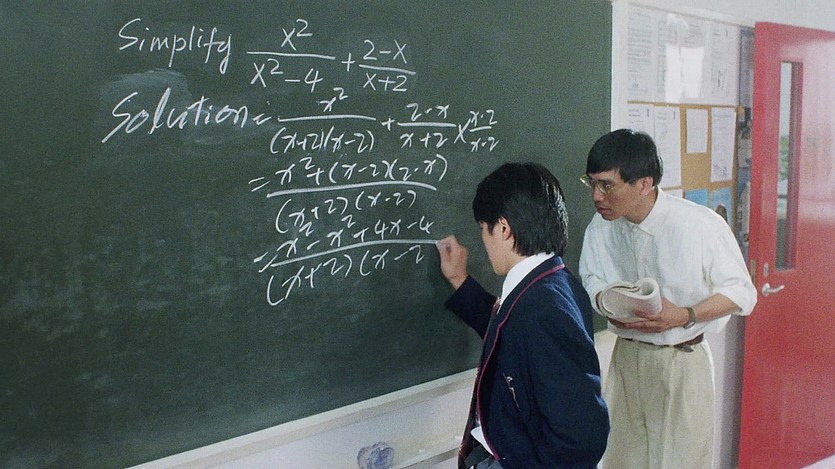 Simplify x²/(x²-4) + (2-x)/(x+2)
Solution: x²/((x+2)(x-2)) + (2-x)/(x+2) × (x-2)/(x-2)
= (x²+(x-2)(2-x))/((x+2)(x-2))
= (x²-x²+4x-4)/((x+2)(x-2